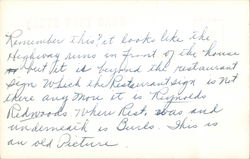 Remember this? it look like the
Highway runs in front of the house
but it is beyond the restaurant
sign. Which the Restaurant sign is not
there any more it is. Reynolds
Redwoods. Where Rest. was and
underneath is Burls. This is
an old Picture.